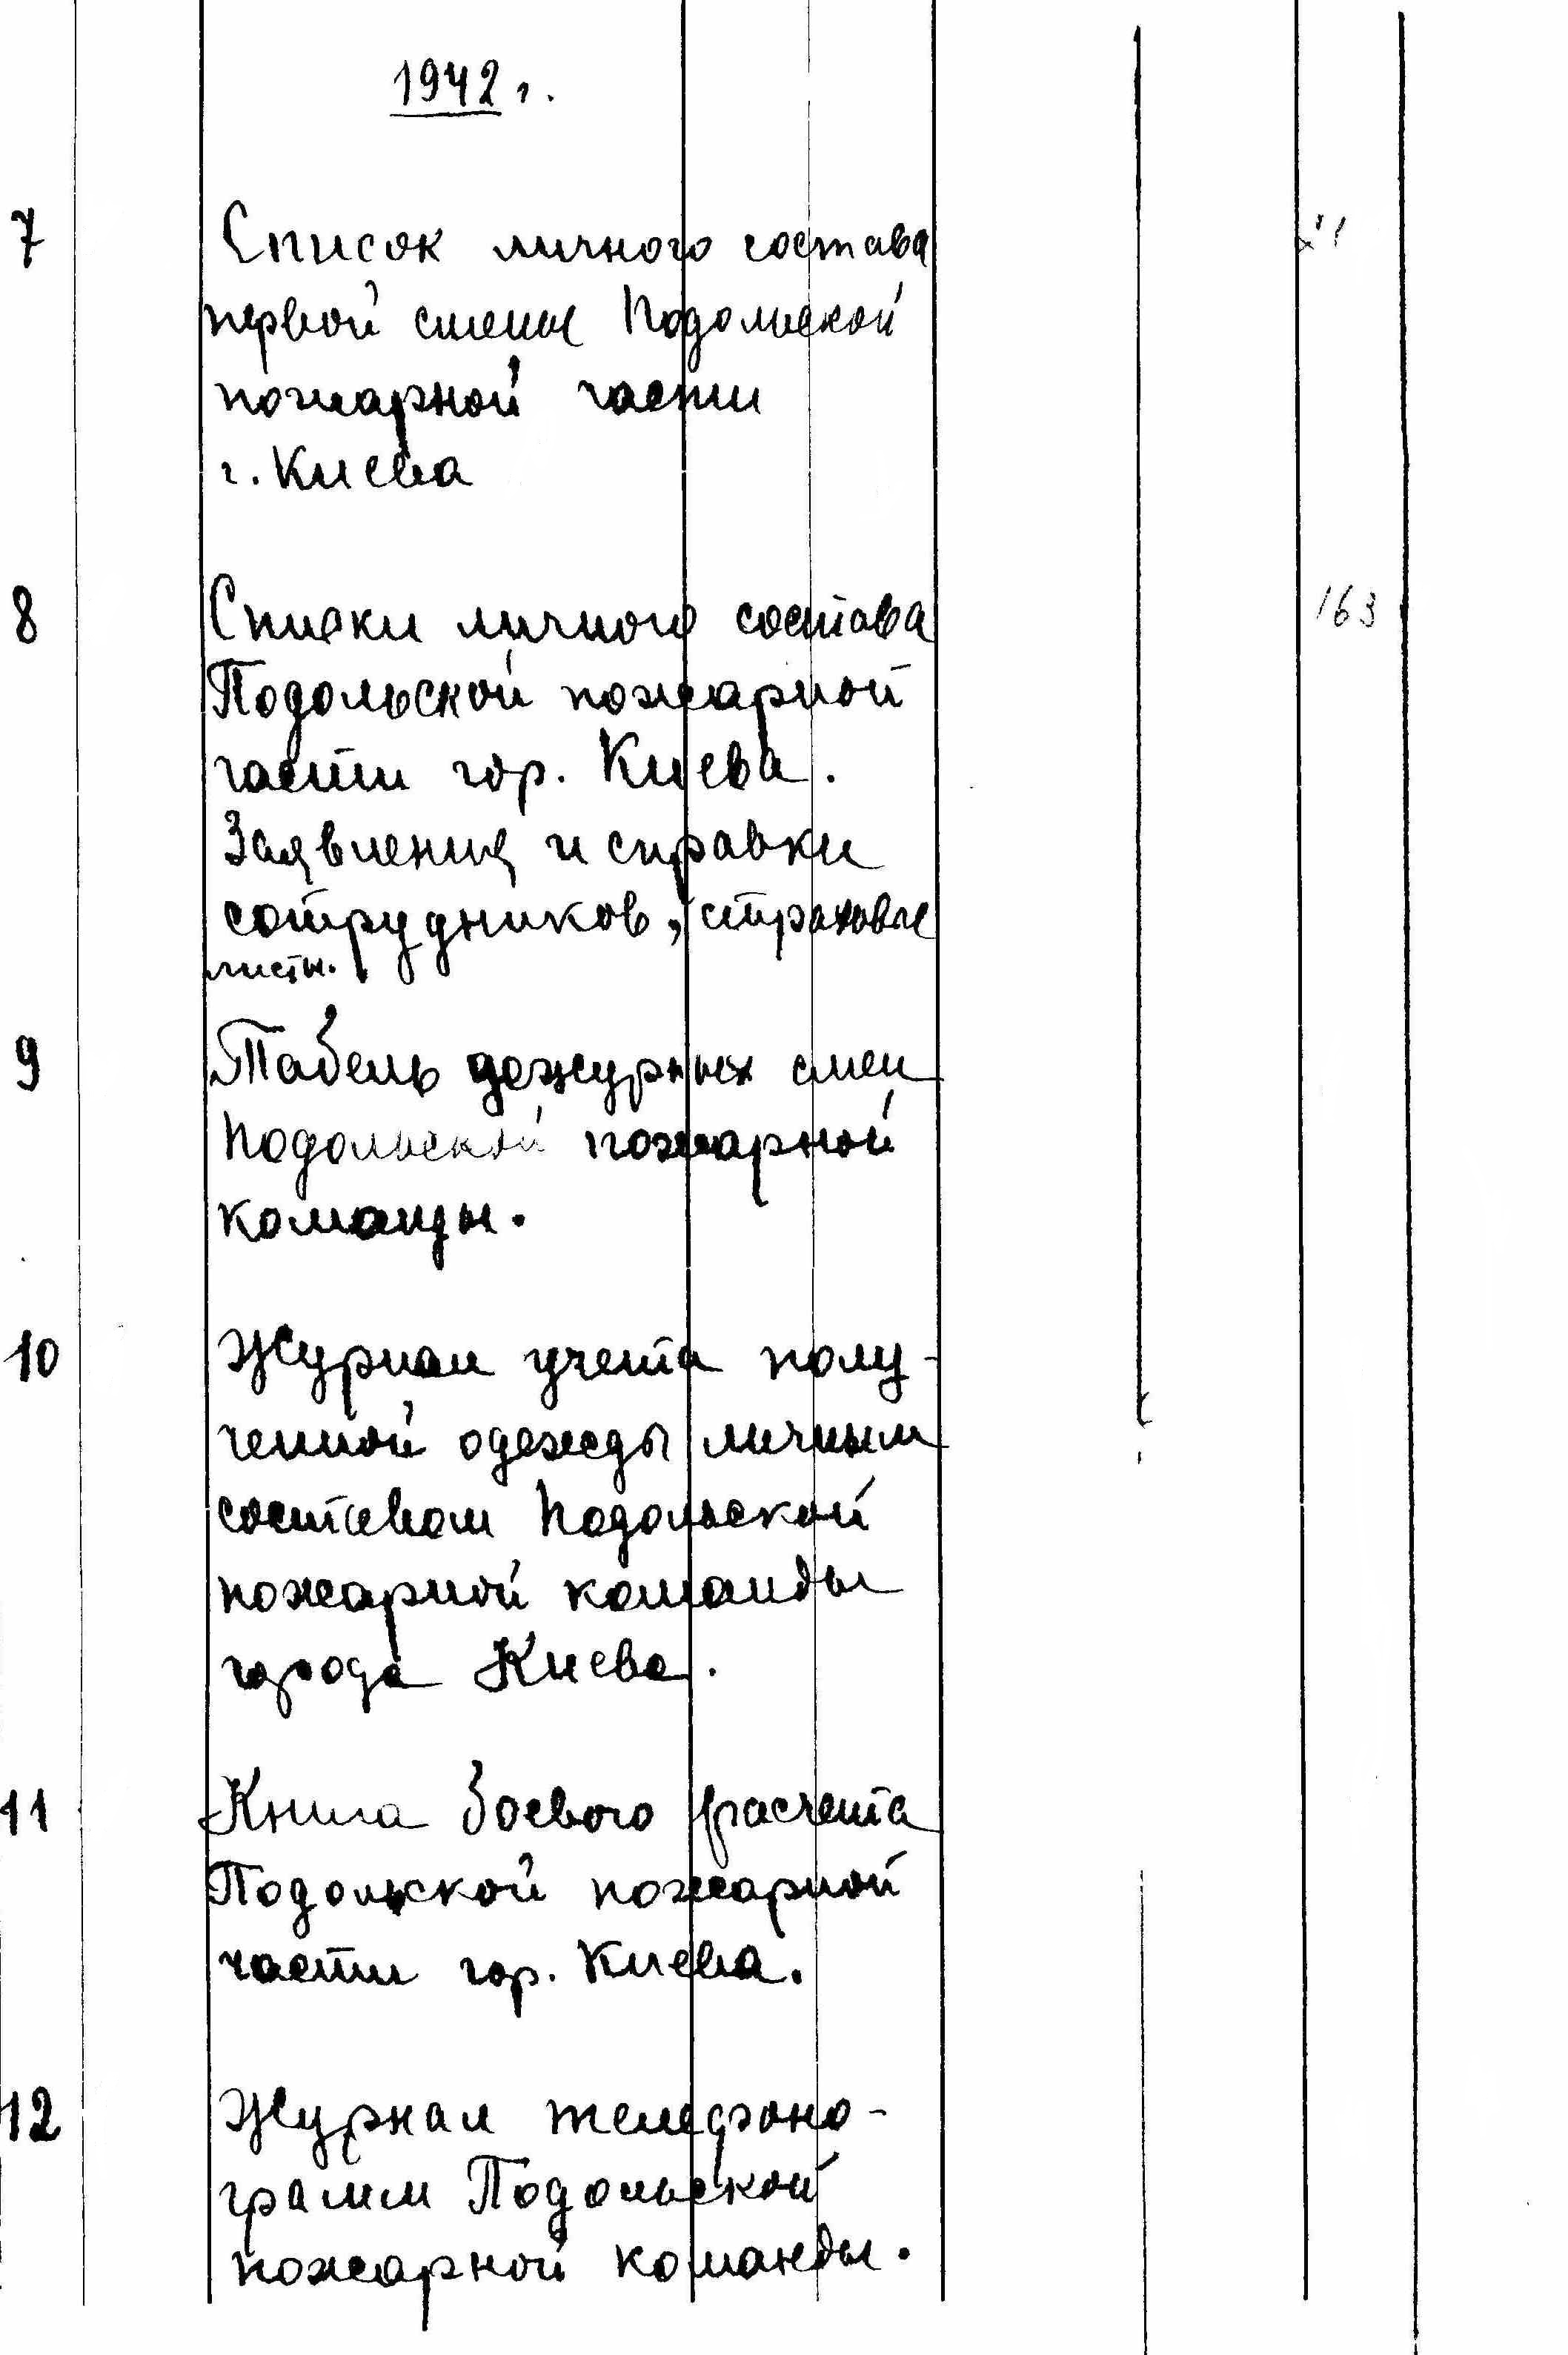 1942 г.
7 Список личного состава
первой смены Подольской
пожарной части
г. Киева
8 Списки личного состава 163
Подольской пожарной
части гор. Киева.
Заявления и справки
сотрудников, страховые
листы.
9 Табель дежурных смен
Подольской пожарной
команды.
10 Журнал учета полу-
ченной одежды личным
составом Подольской
пожарной команды
города Киева.
11 Книга боевого расчета
Подольской пожарной
части гор. Киева.
12 Журнал телефоно-
грамм Подольской
пожарной команды.